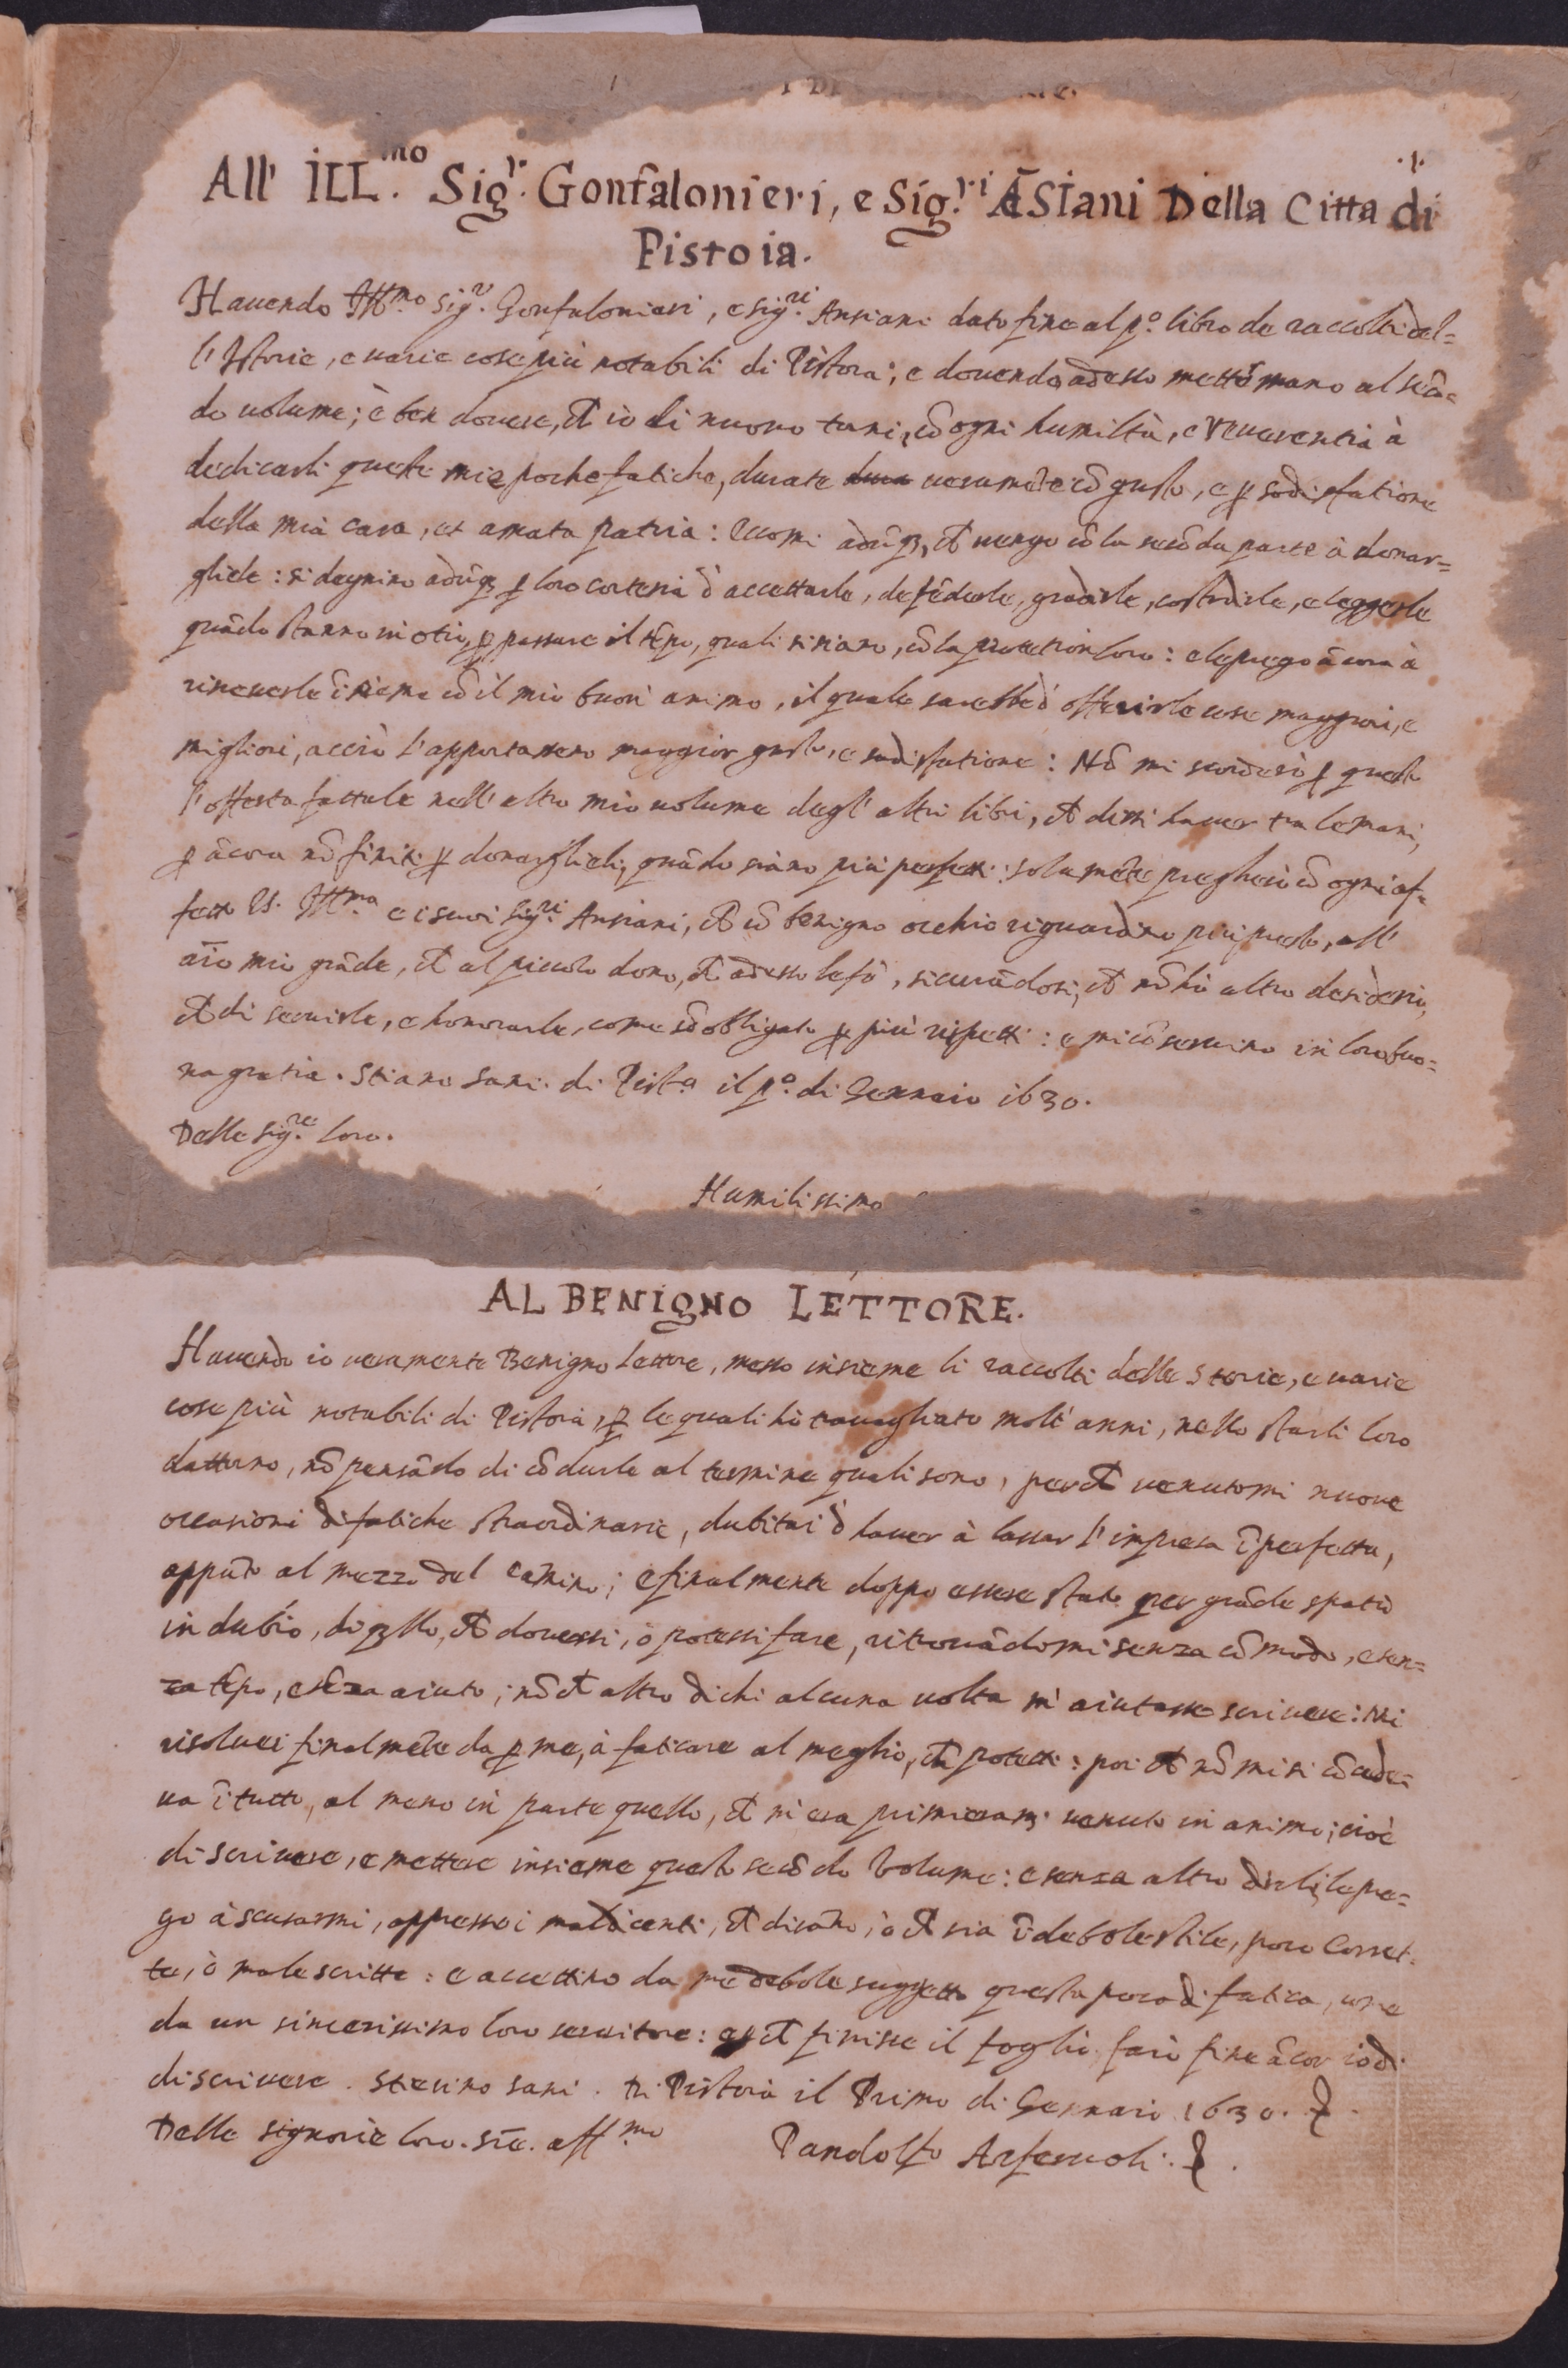 .1.
All' ILL.mo Sigr. Gonfalonieri, e Sig.ri Ãsiani Della Citta di
Pistoia.
Hauendo Ill.mo Sigr. Gonfalonieri, e sig.ri Ansiani dato fine al po. libro de raccolti del=
l'Istorie, e uarie cose più notabili di Pistora; e douendo adesso metter mano al secõ=
do uolume; è ben douere, ch io di nuouo torni, cõ ogni humiltà, e reuerentia à
dedicarli queste mie poche fatiche, durate ueramẽte cõ gusto, e p sodisfatione
della mia cara, et amata patria: Eccomi adũq3, ch uengo cõ la secõda parte à donar=
gliele: si degnino adũq3 p loro cortesia d accettarle, defẽderle, gradirle, costodirle, e leggerle
quãdo stanno in otio, p passare il tẽpo, quali si siano, cõ la protetion loro: e le prego ãcora à
riceuerle ĩsieme cõ il mio buon animo, il quale sarebbe d offerirle cose maggiori, e
migliori, acciò l'apportassero maggior gusto, e sadisfatione: Nõ mi scorderò p questo
l'offerta fattale nell'altro mio uolume degl'altri libri, ch dissi hauer tra le mani,
p ãcora nõ finiti p donarglieli, quãdo siano più perfetti: solamẽte pregherò cõ ogni af=
fetto VS. Ill.ma e i suoi sig.ri Ansiani, ch cõ benigno occhio riguardino più presto, all'
aĩo mio grãde, ch al piccolo dono, ch adesso le fò, sicurãdosi, ch nõ hò altro desiderio,
ch di seruirle, e honorarle, come sõ obligato p più rispetti: e mi cõseruino in loro buo=
na gratia. Stiano sani. di Pist.a il po. di Gennaio 1630.
Delle sig.re loro.
Humilissimo
AL BENIGNO LETTORE.
Hauendo io ueramente Benigno Lettore, messo insieme li raccolti delle Storie, e uarie
cose più notabili di Pistoia, p le quali hò trauagliato molt'anni, nello starli loro
dattorno, nõ pensãdo di cõdurle al termine quali sono, perch uenutomi nuoue
occasioni di fatiche straordinarie, dubitai d hauer à lassar l'impresa ĩperfetta,
appũto al mezzo del camino; e finalmente doppo essere stato per grãde spatio
in dubio, di q3llo, ch douessi, ò potessi fare, ritrouãdomi senza cõmodo, e sen=
za tẽpo, e sẽza aiuto; nõ ch altro di chi alcuna uolta m'aiutasse scriuere: Mi
risoluei finalmẽte da p me, à faticare al meglio, ch potetti: poi ch nõ mi si cõcede=
ua ĩ tutto, al meno in parte quello, ch m'era primieram. uenuto in animo; cioè
di scriuere, e mettere insieme questo secõdo Volume: e senza altro dirli, le pre=
go à scusarmi, appresso i maldicenti, ch dicãno, ò ch sia ĩ debole stile, poco corret=
te, ò male scritte: e accettino da me debole suggetto questa poca di fatica, come
da un sincerissimo loro seruitore: ch finisse il foglio farò fine ãcor io di
di scriuere. Stieino sani. Di Pistoia il Primo di Gennaio 1630.
Delle signorie loro. sre. aff.mo Pandolfo Arferuoli.